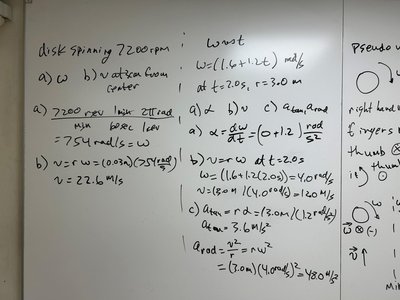 disk spinning 7200 rpm
a) ω b) v at 3cm from
center
a) 7200 rev 1min 2π rad
min 60sec 1rev
= 754 rad/s = ω
b) v = r ω = (0.03m)(754 rad/s)
v = 22.6 m/s
ω vs t
ω = (1.6 + 1.2t) rad/s
at t = 2.0s, r = 3.0m
a) α b) v c) a tan, a rad
a) α = dω/dt = (0 + 1.2) rad/s²
b) v = rω at t = 2.0s
ω = (1.6 + 1.2(2.0s)) = 4.0 rad/s
v = (3.0m)(4.0 rad/s) = 12.0 m/s
c) a tan = r α = (3.0m)(1.2 rad/s²)
a tan = 3.6 m/s²
a rad = v²/r = r ω²
= (3.0m)(4.0 rad/s)² = 48.0 m/s²
Pseudo
right hand
fingers
thumb
ω
ω ⊗ (-)
v ↑